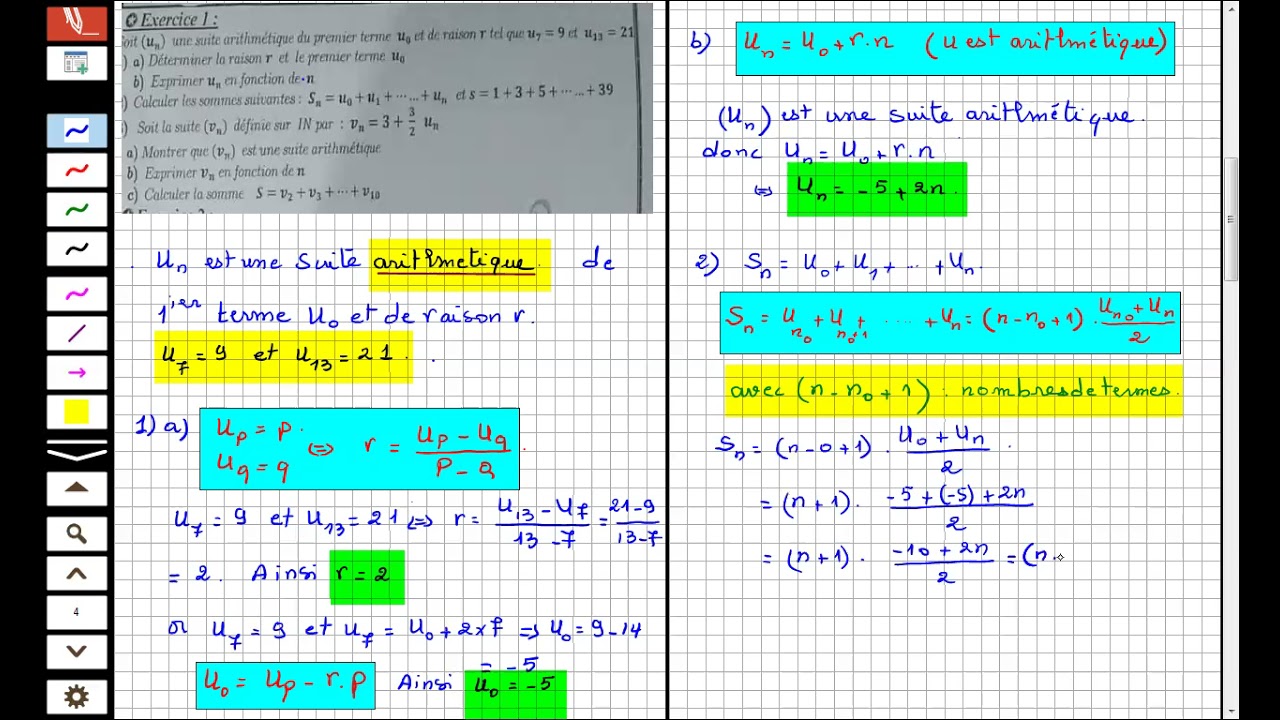 ✪ Exercice 1 :
oit (uₙ) une suite arithmétique du premier terme u₀ et de raison r tel que u₇ = 9 et u₁₃ = 21
) a) Déterminer la raison r et le premier terme u₀
b) Exprimer uₙ en fonction de n
) Calculer les sommes suivantes : Sₙ = u₀ + u₁ + ⋯… + uₙ et s = 1 + 3 + 5 + ⋯… + 39
) Soit la suite (vₙ) définie sur IN par : vₙ = 3 + 3/2 uₙ
a) Montrer que (vₙ) est une suite arithmétique
b) Exprimer vₙ en fonction de n
c) Calculer la somme S = v₂ + v₃ + ⋯ + v₁₀
. Uₙ est une suite arithmetique. de
1ier terme U₀ et de raison r.
U₇ = 9 et U₁₃ = 21. .
1) a) Up = p. ⇔ r = (Up - Uq)/(P - Q).
Uq = q
U₇ = 9 et U₁₃ = 21 ⇔ r = (U₁₃ - U₇)/(13 - 7) = (21 - 9)/(13 - 7)
= 2. Ainsi r = 2
or U₇ = 9 et U₇ = U₀ + 2×7 ⇒ U₀ = 9 - 14
= - 5
U₀ = Up - r.p Ainsi U₀ = -5
b) Uₙ = U₀ + r.n (u est arithmétique)
(Uₙ) est une suite arithmétique.
donc Uₙ = U₀ + r.n
⇔ Uₙ = - 5 + 2n.
2) Sₙ = U₀ + U₁ + ... + Uₙ.
Sₙ = Uₙ₀ + Uₙ₀₊₁ + ..... + Uₙ = (n - n₀ + 1) . (Uₙ₀ + Uₙ)/2
avec (n - n₀ + 1) : nombres de termes.
Sₙ = (n - 0 + 1) . (U₀ + Uₙ)/2 .
= (n + 1) . (-5 + (-5) + 2n)/2
= (n + 1) . (-10 + 2n)/2 = (n
4